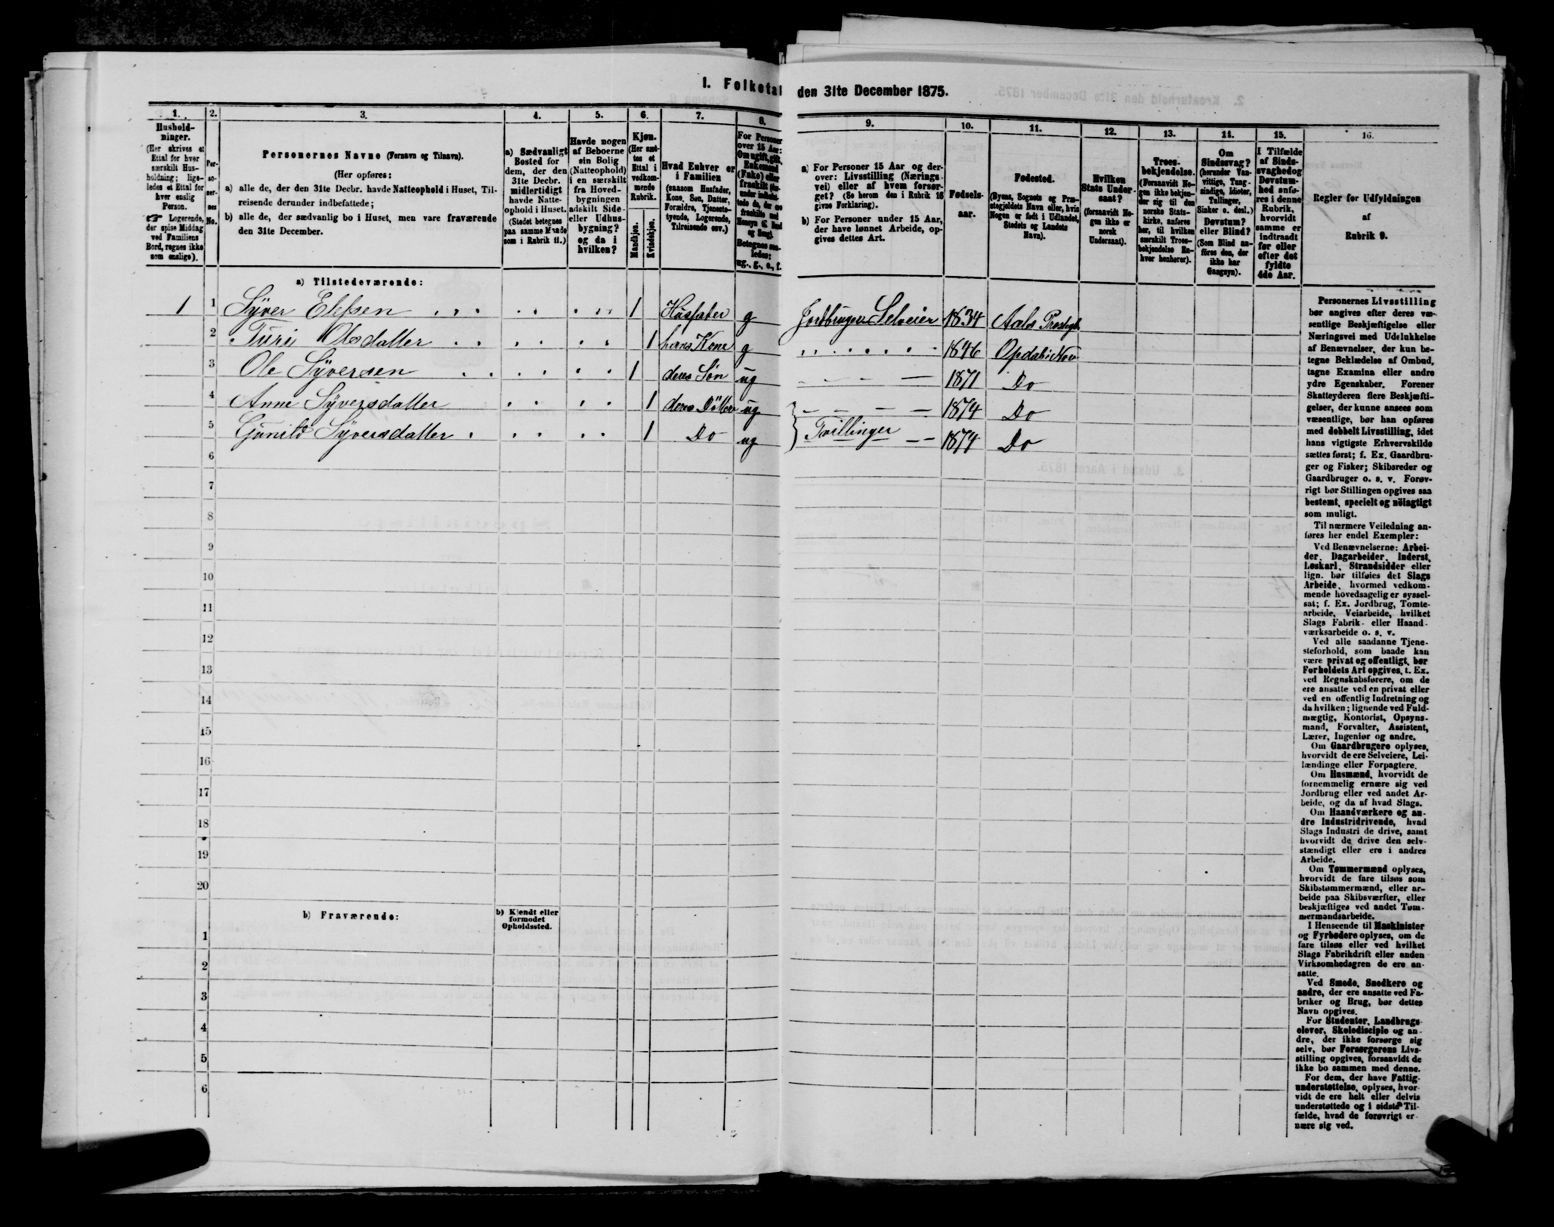 I. Folketal den 31te December 1875.
1. 2. 3. 4. 5. 6. 7. 8. 9. 10. 11. 12. 13. 14. 15. 16.
Hushold-
ninger.
(Her skrives et
Ettal for hver
særskilt Hus-
holdning; lige-
ledes et Ettal for
hver enslig
Person.
☞ Logerende,
der spise Middag
ved Familiens
Bord, regnes ikke
som enslige).
Per-
so-
ner-
nes
No.
Personernes Navne (Fornavn og Tilnavn).
(Her opføres:
a) alle de, der den 31te Decbr. havde Natteophold i Huset, Til-
reisende derunder indbefattede;
b) alle de, der sædvanlig bo i Huset, men vare fraværende
den 31te December.
a) Sædvanligt
Bosted for
dem, der den
31te Decbr.
midlertidigt
havde Natte-
ophold i Huset.
(Stedet betegnes
paa samme Maade
som i Rubrik 11.)
Havde nogen
af Beboerne
sin Bolig
(Natteophold)
i en særskilt
fra Hoved-
bygningen
adskilt Side-
eller Udhus-
bygning?
og da i
hvilken?
Kjøn.
(Her sæt-
tes et
Ettal i
vedkom-
mende
Rubrik.
Mandkjøn.
Kvindekjøn.
Hvad Enhver er
i Familien
(saasom Husfader,
Kone, Søn, Datter,
Forældre, Tjeneste-
tyende, Logerende,
Tilreisende osv.)
For Personer
over 15 Aar:
Om ugift, gift,
Enkemand
(Enke) eller
fraskilt
ug., g., e., f.
a) For Personer 15 Aar og der-
over: Livsstilling (Nærings-
vei) eller af hvem forsør-
get? (Se herom den i Rubrik 16
givne Forklaring).
b) For Personer under 15 Aar,
der have lønnet Arbeide, op-
gives dettes Art.
Fødsels-
aar.
Fødested.
(Byens, Sognets og Præ-
stegjeldets Navn eller, hvis
Nogen er født i Udlandet,
Stedets og Landets
Navn).
Hvilken
Stats Under-
saat?
(forsaavidt No-
gen ikke er
norsk
Undersaat).
Troes-
bekjendelse.
(Forsaavidt No-
gen ikke bekjen-
der sig til den
norske Stats-
kirke, anføres
her, til hvilken
særskilt Troes-
bekjendelse En-
hver henhører).
Om
Sindssvag?
(herunder Van-
vittige, Tung-
sindige, Idioter,
Tullinger,
Sinker o. desl.)
Døvstum?
eller Blind?
(Som Blind an-
føres den, der
ikke har
Gangsyn).
I Tilfælde
af Sinds-
svaghed og
Døvstum-
hed anfø-
res i denne
Rubrik,
hvorvidt
samme er
indtraadt
før eller
efter det
fyldte
4de Aar.
Regler for Udfyldningen
af
Rubrik 9.
a) Tilstedeværende:
1 1 Syver Ellefsen 1 Husfader g Jordbruger Selveier 1834 Aals Prestegj.
2 Turi Olsdatter 1 hans Kone g 1846 Opdal i Num
3 Ole Syversen 1 deres Søn ug 1871 Do
4 Anne Syversdatter 1 deres Datter ug 1874 Do
5 Gunild Syversdatter 1 Do ug Tvillinger 1874 Do
6
7
8
9
10
11
12
13
14
15
16
17
18
19
20
b) Fraværende:
b) Kjendt eller
formodet
Opholdssted.
1
2
3
4
5
6
Personernes Livsstilling
bør angives efter deres væ-
sentlige Beskjæftigelse eller
Næringsvei med Udelukkelse
af Benævnelser, der kun be-
tegne Beklædelse af Ombud,
tagne Examina eller andre
ydre Egenskaber. Forener
Skatteyderen flere Beskjæfti-
gelser, der kunne ansees som
væsentlige, bør han opføres
med dobbelt Livsstilling, idet
hans vigtigste Erhvervskilde
sættes først; f. Ex. Gaardbru-
ger og Fisker; Skibsreder og
Gaardbruger o. s. v. Forøv-
rigt bør Stillingen opgives saa
bestemt, specielt og nøiagtigt
som muligt.
Til nærmere Veiledning an-
føres her endel Exempler:
Ved Benævnelserne: Arbei-
der, Dagarbeider, Inderst,
Løskarl, Strandsidder eller
lign. bør tilføies det Slags
Arbeide, hvormed vedkom-
mende hovedsagelig er syssel-
sat; f. Ex. Jordbrug, Tomte-
arbeide, Veiarbeide, hvilket
Slags Fabrik- eller Haand-
værksarbeide o. s. v.
Ved alle saadanne Tjene-
steforhold, som baade kan
være privat og offentligt, bør
Forholdets Art opgives, t. Ex.
ved Regnskabsførere, om de
ere ansatte ved en privat eller
ved en offentlig Indretning og
da hvilken; lignende ved Fuld-
mægtig, Kontorist, Opsyns-
mand, Forvalter, Assistent,
Lærer, Ingeniør og andre.
Om Gaardbrugere oplyses,
hvorvidt de ere Selveiere, Lei-
lændinge eller Forpagtere.
Om Husmænd, hvorvidt de
fornemmelig ernære sig ved
Jordbrug eller ved andet Ar-
beide, og da af hvad Slags.
Om Haandværkere og an-
dre Industridrivende, hvad
Slags Industri de drive, samt
hvorvidt de drive den selv-
stændigt eller ere i andres
Arbeide.
Om Tømmermænd oplyses,
hvorvidt de fare tilsøs som
Skibstømmermænd, eller ar-
beide paa Skibsværfter, eller
beskjæftiges ved andet Tøm-
mermandsarbeide.
I Henseende til Maskinister
og Fyrbødere oplyses, om de
fare tilsøs eller ved hvilket
Slags Fabrikdrift eller anden
Virksomhedsgren de ere an-
satte.
Ved Smede, Snedkere og
andre, der ere ansatte ved Fa-
briker og Brug, bør dettes
Navn opgives.
For Studenter, Landbrugs-
elever, Skoledisciple og an-
dre, der ikke forsørge sig
selv, bør Forsørgerens Livs-
stilling opgives, forsaavidt de
ikke bo sammen med denne.
For dem, der have Fattig-
understøttelse, oplyses, hvor-
vidt de ere helt eller delvis
understøttede og i sidste Til-
fælde, hvad de forøvrigt er-
nære sig ved.